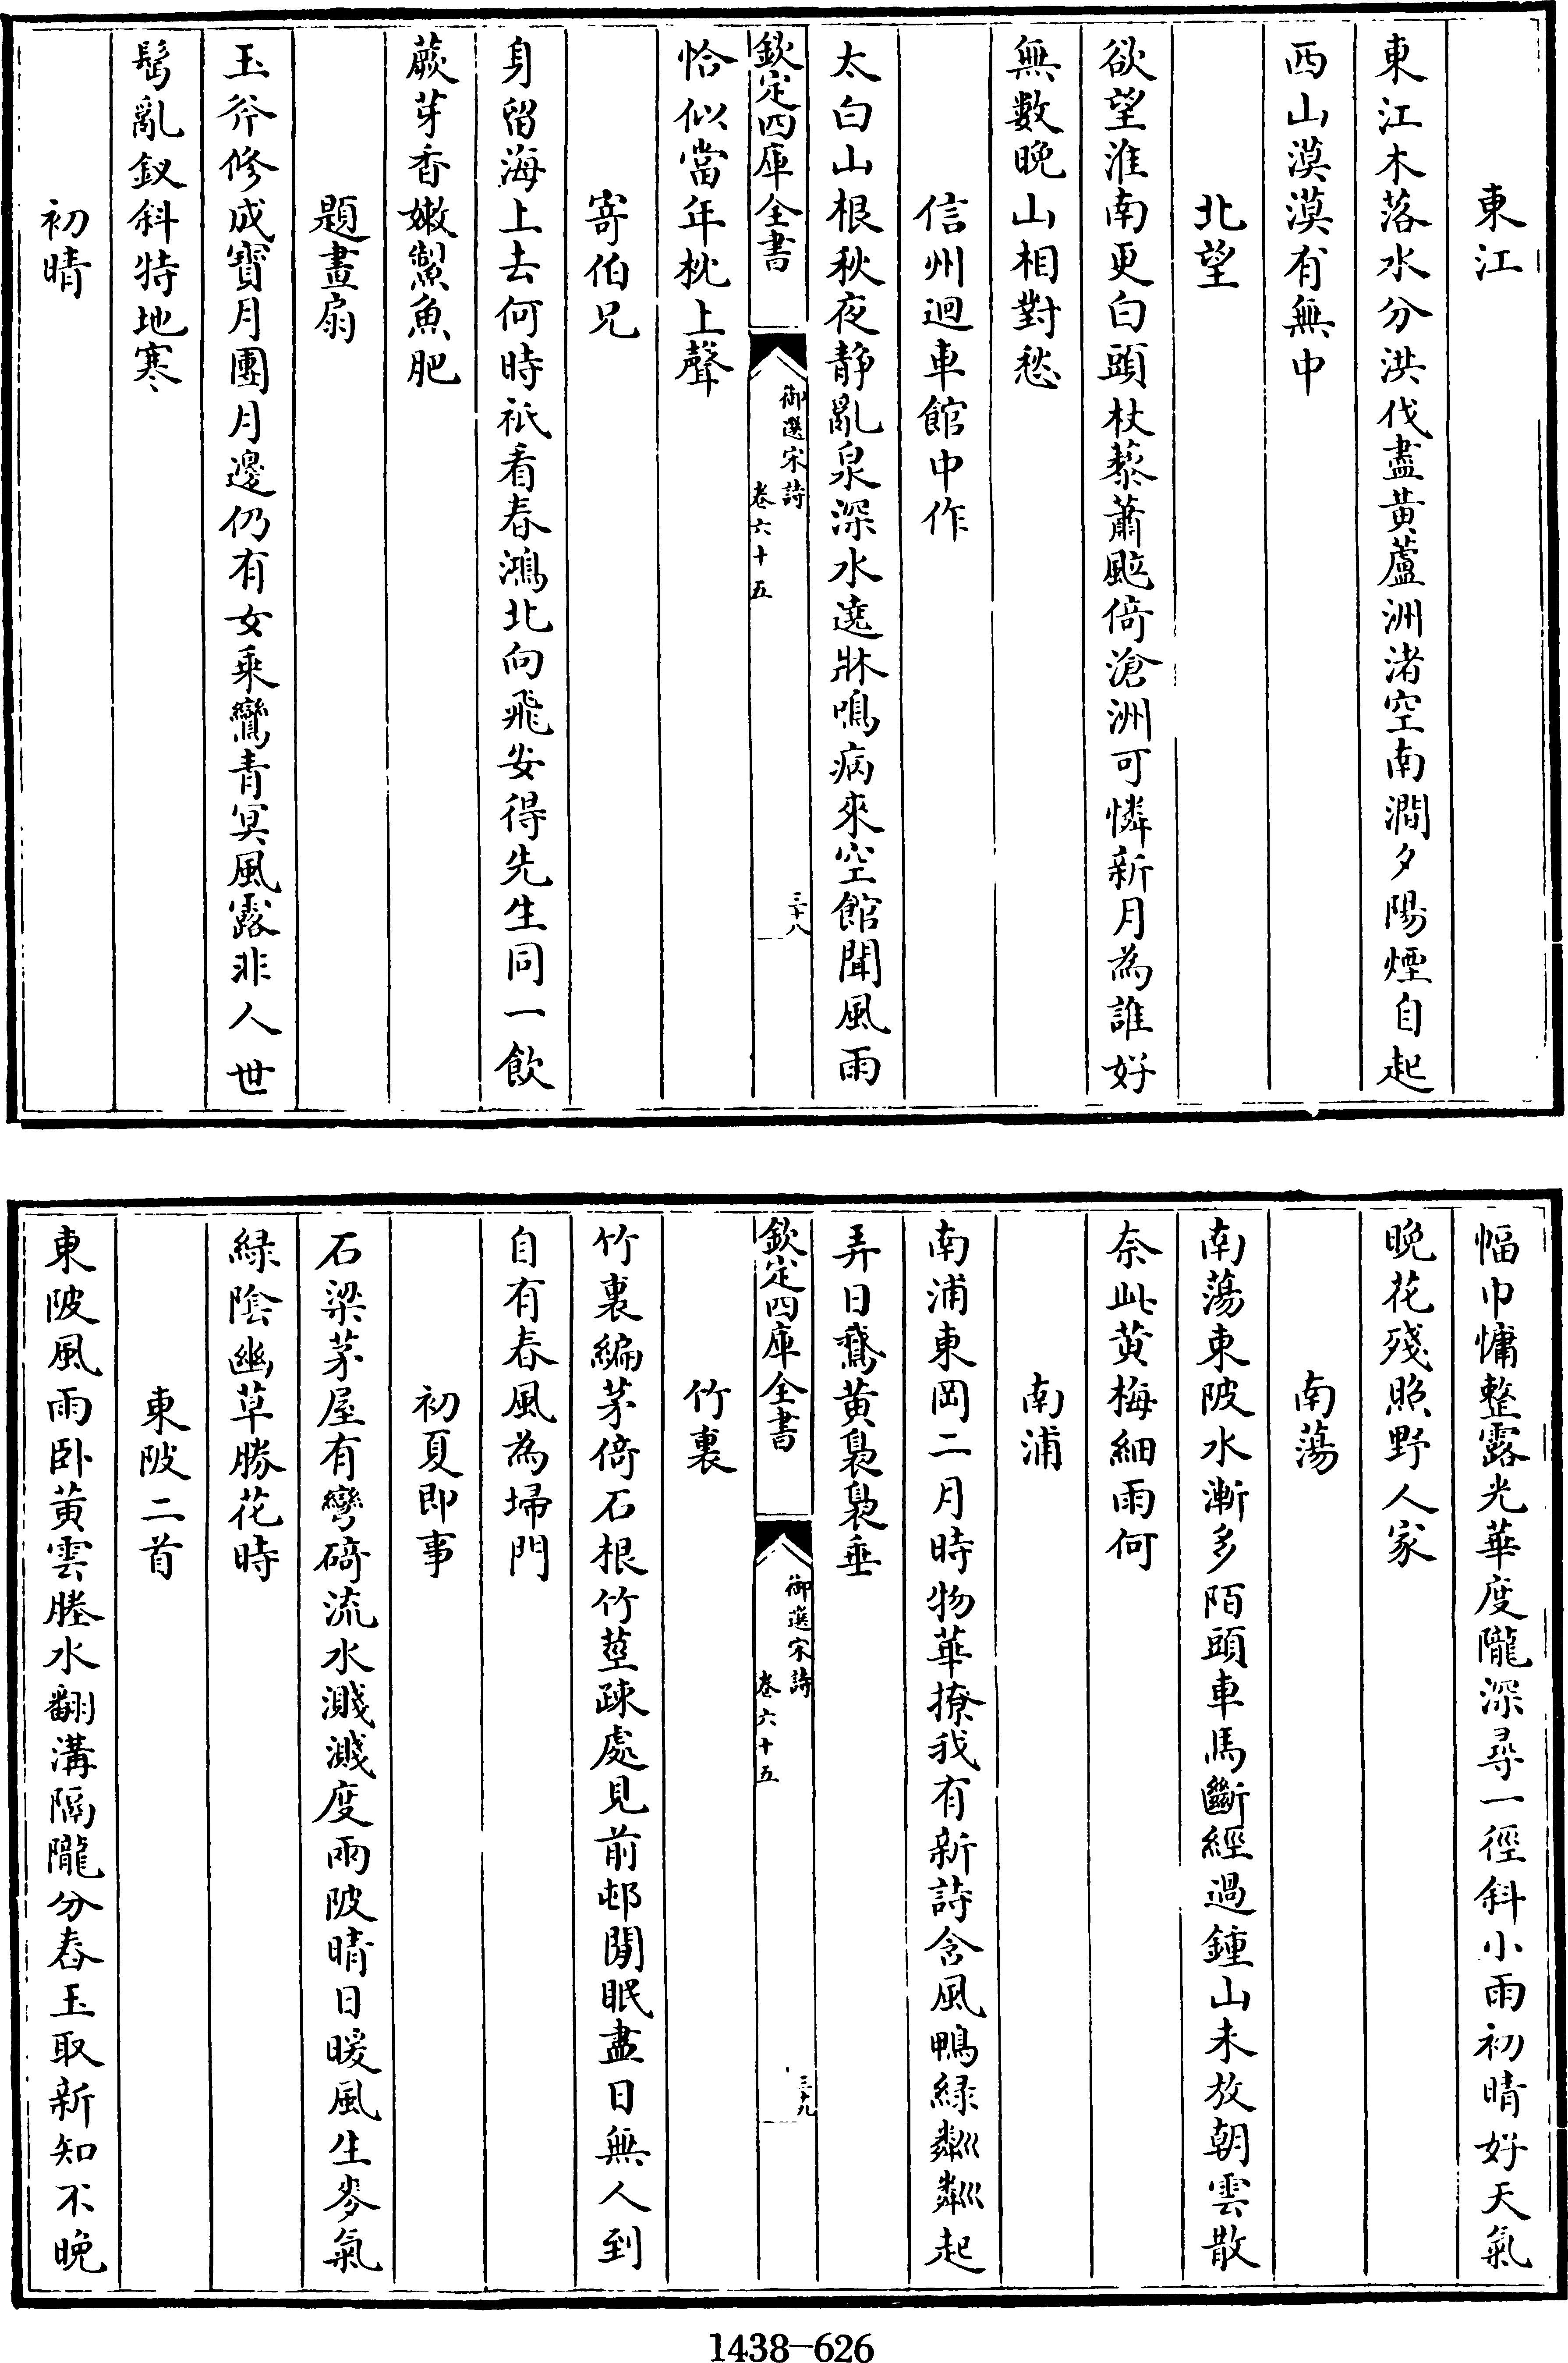 東江
東江木落水分洪伐盡黃蘆洲渚空南澗夕陽煙自起
西山漠漠有無中
北望
欲望淮南更白頭杖藜蕭颯倚滄洲可憐新月為誰好
無數晚山相對愁
信州迴車館中作
太白山根秋夜靜亂泉深水遶牀鳴病來空館聞風雨
欽定四庫全書
御選宋詩
卷六十五
三十八
恰似當年枕上聲
寄伯兄
身留海上去何時祇看春鴻北向飛安得先生同一飲
蕨芽香嫩鱀魚肥
題畫扇
玉斧修成寶月團月邊仍有女乘鸞青冥風露非人世
髩亂釵斜特地寒
初晴
幅巾慵整露光華度隴深尋一徑斜小雨初晴好天氣
晚花殘照野人家
南蕩
南蕩東陂水漸多陌頭車馬斷經過鍾山未放朝雲散
奈此黃梅細雨何
南浦
南浦東岡二月時物華撩我有新詩含風鴨綠粼粼起
弄日鵞黃裊裊垂
欽定四庫全書
御選宋詩
卷六十五
三十九
竹裏
竹裏編茅倚石根竹莖疎處見前邨閒眠盡日無人到
自有春風為埽門
初夏即事
石梁茅屋有彎碕流水濺濺度兩陂晴日暖風生麥氣
綠陰幽草勝花時
東陂二首
東陂風雨臥黃雲塍水翻溝隔隴分舂玉取新知不晚
1438-626